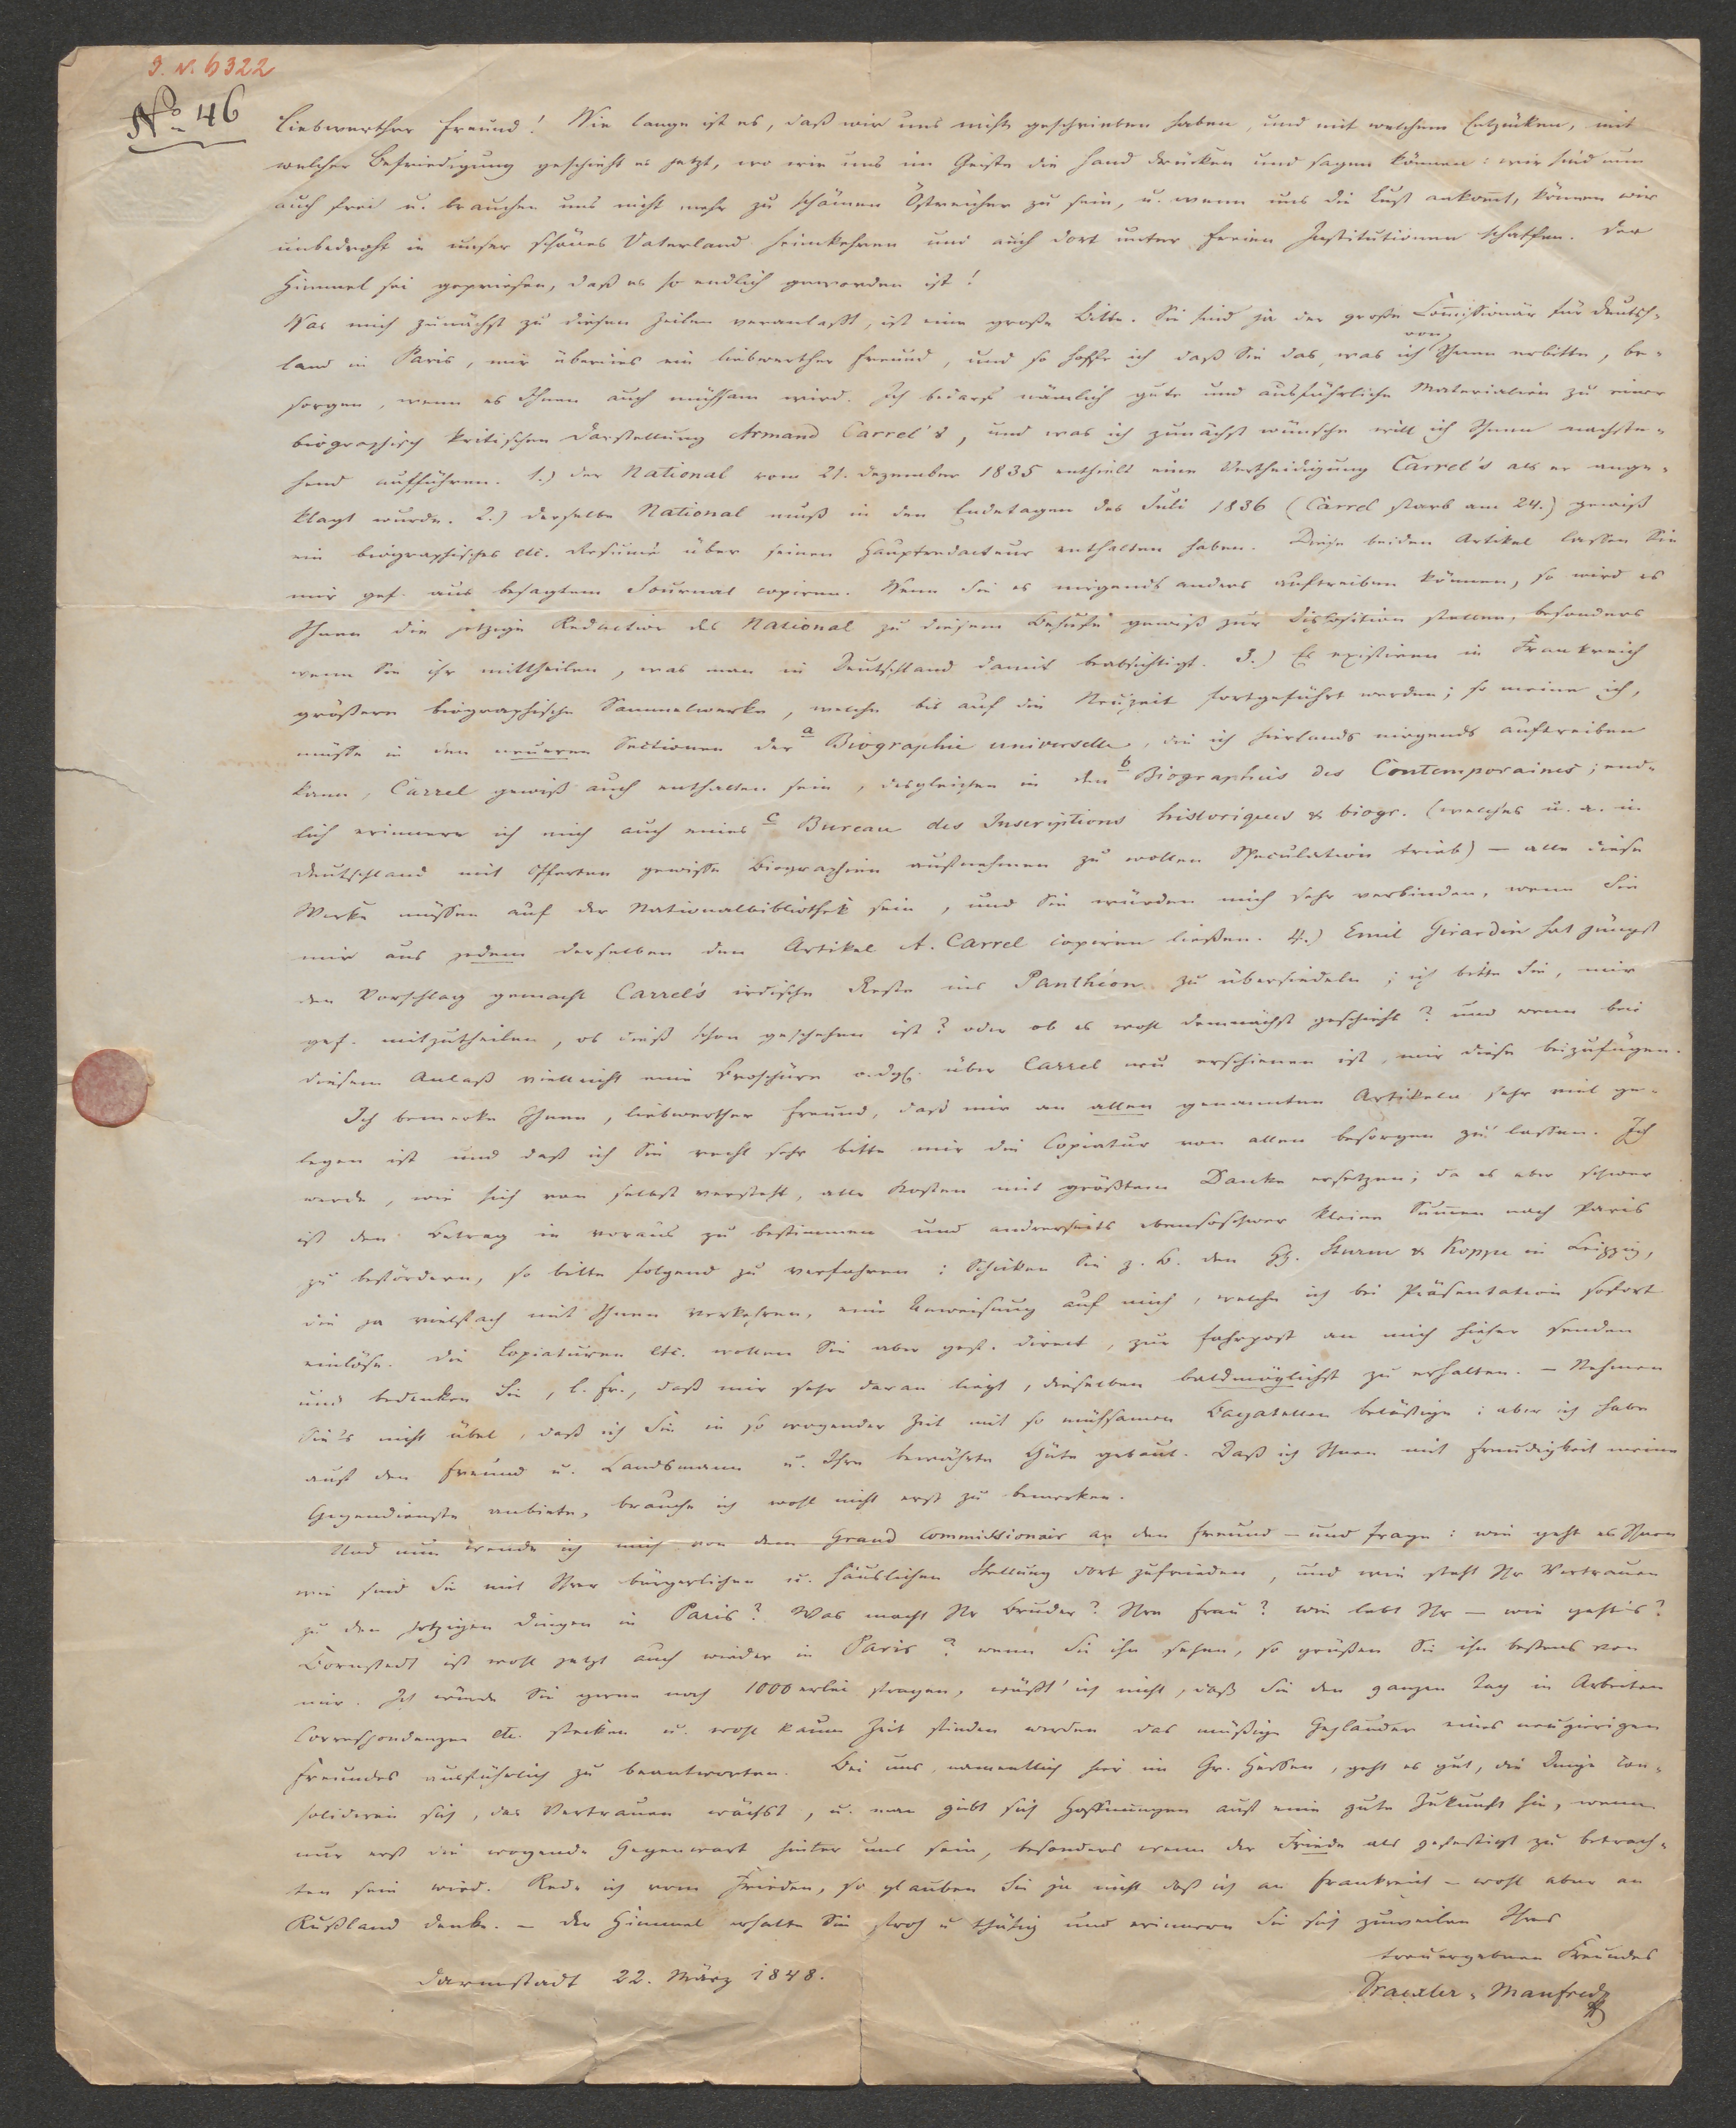 J. N. 6322
No 46
Liebwerther Freund! Wie lange ist es, daß wir uns nicht geschrieben haben, und mit welchem Entzücken, mit
welcher Befriedigung geschieht es jetzt, wo wir uns im Geiste die Hand drücken und sagen können: wir sind nun
auch frei u. brauchen uns nicht mehr zu schämen Östreicher zu sein, u. wenn uns die Lust ankomt, können wir
unbedroht in unser schönes Vaterland heimkehren und auch dort unter freien Institutionen schaffen. Der
Himmel sei gepriesen, daß es so endlich geworden ist!
Was mich zunächst zu diesen Zeilen veranlaßt, ist eine große Bitte. Sie sind ja der große Comissionär für Deutsch-
land in Paris, mir überdies ein liebwerther Freund, und so hoffe ich daß Sie das, was ich von Ihnen erbitte, be-
sorgen, wenn es Ihnen auch mühsam wird. Ich bedarf nämlich gute und ausführliche Materialien zu einer
biographisch kritischen Darstellung Armand Carrel's, und was ich zunächst wünsche will ich Ihnen nachste-
hend aufführen. 1.) der National vom 21. Dezember 1835 enthielt eine Vertheidigung Carrel's als er ange-
klagt wurde. 2.) derselbe National muß in den Endetagen des Juli 1836 (Carrel starb am 24.) gewiß
ein biographisches etc. Resumé über seinen Hauptredacteur enthalten haben. Diese beiden Artikel lassen Sie
mir gef. aus besagtem Journal copiren. Wenn Sie es nirgends anders auftreiben können, so wird es
Ihnen die jetzige Redaction des National zu diesem Behufe gewiß zur Disposition stellen, besonders
wenn Sie ihr mittheilen, was man in Deutschland damit beabsichtigt. 3.) Es existiren in Frankreich
größere biographische Sammelwerke, welche bis auf die Neuzeit fortgeführt werden; so meine ich,
müßte in den neueren Sectionen der a Biographie universelle, die ich hierlands nirgends auftreiben
kann, Carrel gewiß auch enthalten sein, desgleichen in den b Biographies des Contemporaines; end-
lich erinnere ich mich auch eines c Bureau des Inscriptions historiques & biogr. (welches u. a. in
Deutschland mit Offerten gewisse Biographien aufnehmen zu wollen Speculation trieb) – alle diese
Werke müssen auf der Nationalbibliothek sein, und Sie würden mich sehr verbinden, wenn Sie
mir aus jedem derselben den Artikel A. Carrel copiren ließen. 4.) Emil Girardin hat jüngst
den Vorschlag gemacht Carrel's irdische Reste ins Panthéon zu übersiedeln; ich bitte Sie, mir
gef. mitzutheilen, ob dieß schon geschehen ist? oder ob es wohl demnächst geschieht? und wenn bei
diesem Anlaß vielleicht eine Broschüre o. dgl. über Carrel neu erschienen ist, mir diese beizufügen.
Ich bemerke Ihnen, liebwerther Freund, daß mir an allen genannten Artikeln sehr viel ge-
legen ist und daß ich Sie recht sehr bitte mir die Copiatur von allen besorgen zu lassen. Ich
werde, wie sich von selbst versteht, alle Kosten mit größtem Danke ersetzen; da es aber schwer
ist den Betrag im voraus zu bestimmen und andrerseits ebensoschwer kleine Sumen nach Paris
zu befördern, so bitte folgend zu verfahren: Schicken Sie z. B. den HH. Sturm & Koppe in Leipzig,
die ja vielfach mit Ihnen verkehren, eine Anweisung auf mich, welche ich bei Präsentation sofort
einlöse. Die Copiaturen etc. wollen Sie aber gef. direct, zur Fahrpost an mich hieher senden
und bedenken Sie, l. Fr., daß mir sehr daran liegt, dieselben baldmöglichst zu erhalten. – Nehmen
Sie's nicht übel, daß ich Sie in so wogender Zeit mit so mühsamen Bagatellen belästige; aber ich habe
auf den Freund u. Landsmann u. Ihre bewährte Güte gebaut. Daß ich Ihnen mit Freudigkeit meine
Gegendienste anbiete, brauche ich wohl nicht erst zu bemerken.
Und nun wende ich mich von dem Grand Commissionair an den Freund – und frage: wie geht es Ihnen
wie sind Sie mit Ihrer bürgerlichen u. häuslichen Stellung dort zufrieden, und wie steht Ihr Vertrauen
zu den jetzigen Dingen in Paris? Was macht Ihr Bruder? Ihre Frau? wie lebt Ihr – wie geht's?
Bornstedt ist wohl jetzt auch wieder in Paris? wenn Sie ihn sehen, so grüßen Sie ihn bestens von
mir. Ich würde Sie gerne noch 1000erlei fragen, wüßt' ich nicht, daß Sie den ganzen Tag in Arbeiten
Correspondenzen etc. stecken u. wohl kaum Zeit finden werden das müßige Geplauder eines neugierigen
Freundes ausführlich zu beantworten. Bei uns, namentlich hier im Gr. Hessen, geht es gut, die Dinge con-
solidiren sich, das Vertrauen wächst, u. man gibt sich Hoffnungen auf eine gute Zukunft hin, wenn
nur erst die wogende Gegenwart hinter uns sein, besonders wenn der Friede als gefestigt zu betrach-
ten sein wird. Rede ich vom Frieden, so glauben Sie ja nicht daß ich an Frankreich – wohl aber an
Rußland denke. – Der Himmel erhalte Sie froh u thätig und erinnern Sie sich zuweilen Ihres
treuergebnen Freundes
Darmstadt 22. März 1848.
Draexler-Manfred